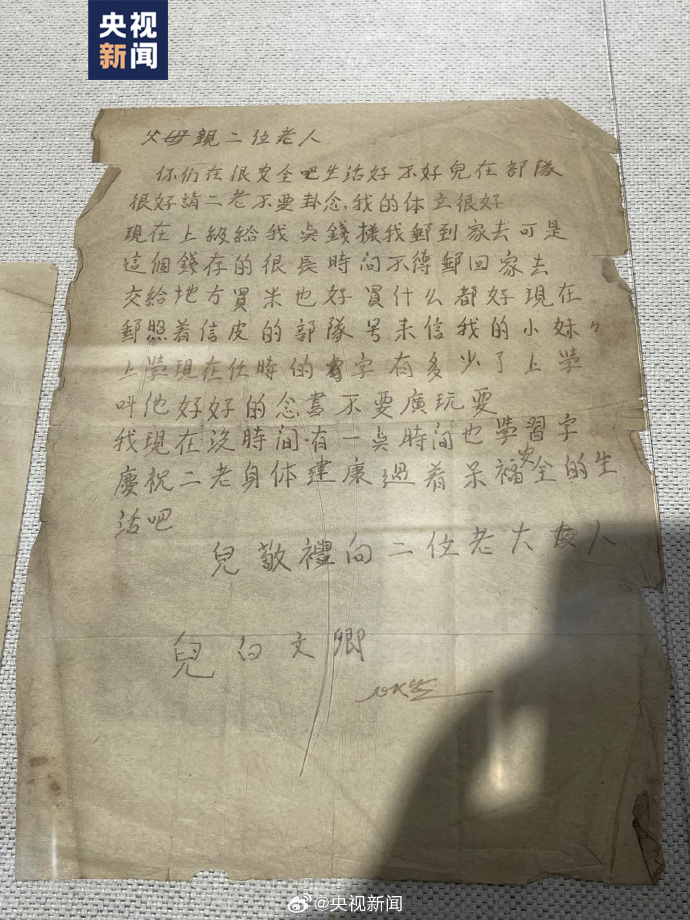 央视
新闻
父母親二位老人
你们在很安全吧生活好不好兒在部隊
很好請二老不要卦念我的体立很好
現在上級給我錢讓我郵到家去可是
這個錢存的很長時间不得郵回家去
交給地方買米也好買什么都好現在
郵照着信皮的部隊号来信我的小妹〃
上學現在什時的字有多少了上學
叫他好好的念書不要廣玩耍
我現在沒時间有一時间也學習字
慶祝二老身体建康過着福安全的生
活吧
兒敬禮向二位老大人
兒白文卿
@央视新闻